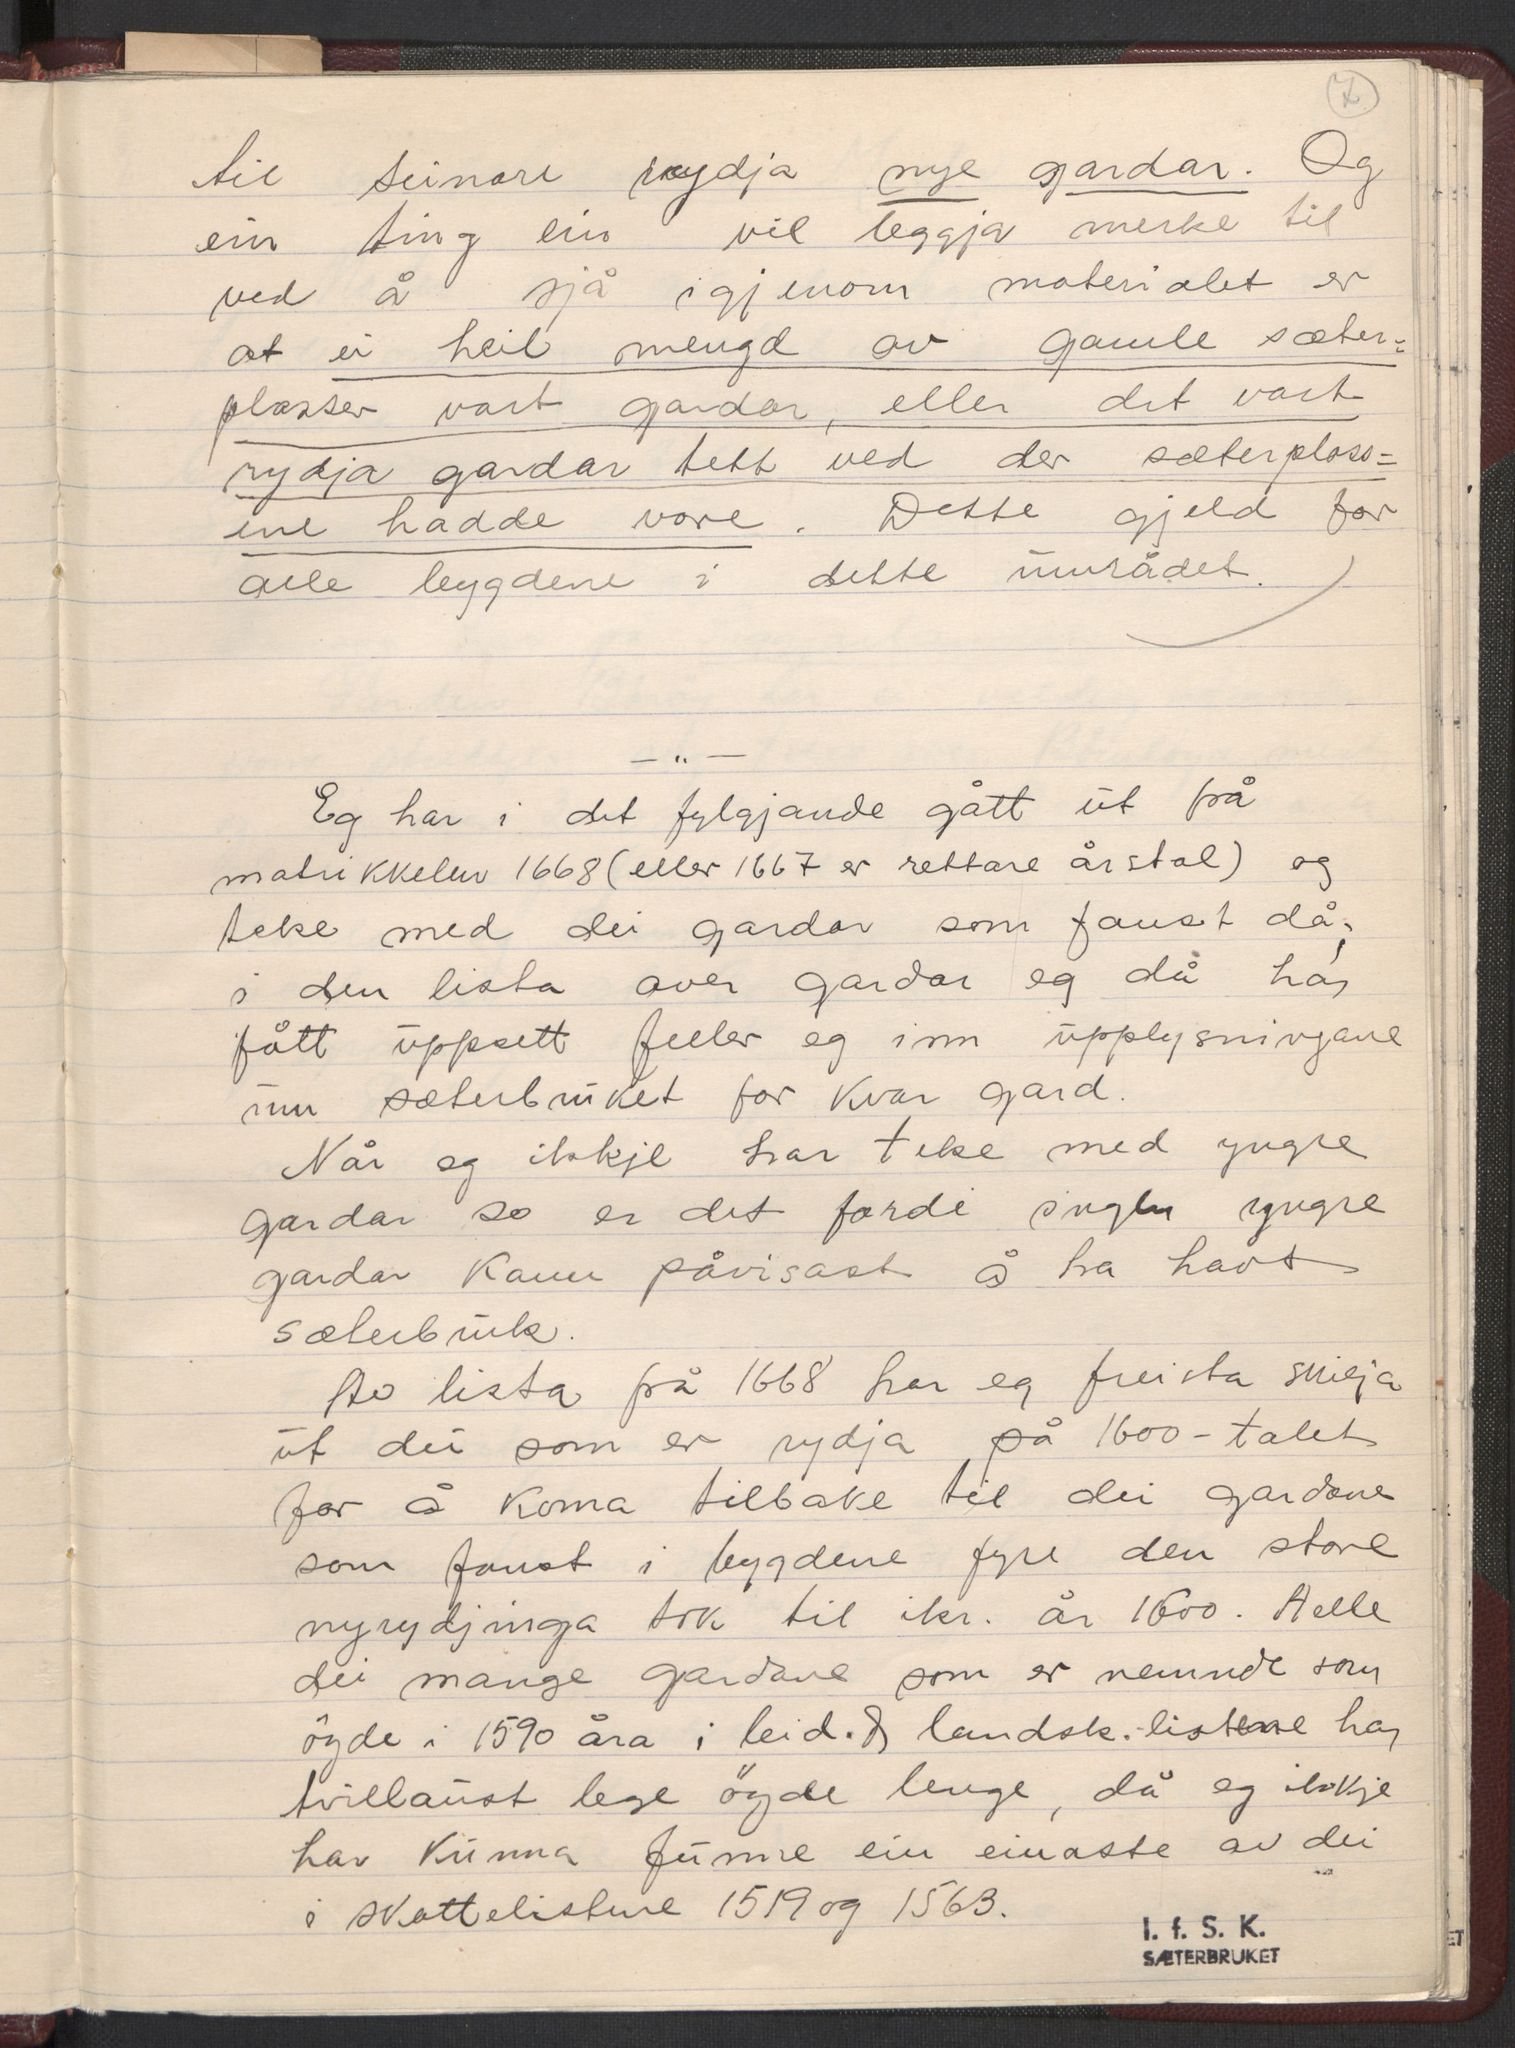 7
til seinare rydja nye gardar. Og
ein ting ein vil leggja merke til
ved å sjå igjenom materialet er
at ei heil mengd av gamle sæter=
plasser vart gardar, eller det vart
rydja gardar tett ved der sæterplass=
ene hadde vore. Dette gjeld for
alle bygdene i dette området.
— " —
Eg har i det fylgjande gått ut frå
matrikkelen 1668 (eller 1667 er rettare årstal) og
teke med dei gardar som fanst då;
i den lista over gardar eg då har
fått uppsett feller eg inn upplysningane
um sæterbruket for kvar gard.
Når eg ikkje har teke med yngre
gardar so er det fordi ingen yngre
gardar kann påvisast å ha havt
sæterbruk.
Av lista frå 1668 har eg freista skilja
ut dei som er rydja på 1600-talet
for å koma tilbake til dei gardane
som fanst i bygdene fyre den store
nyrydjinga tok til ikr. år 1600. Alle
dei mange gardane som er nemnde som
öyde i 1590 åra i leid. & landsk.-listene har
tvillaust lege öyde lenge, då eg ikkje
har kunna funne ein einaste av dei
i skattelistene 1519 og 1563.
I. f. S. K.
SÆTERBRUKET